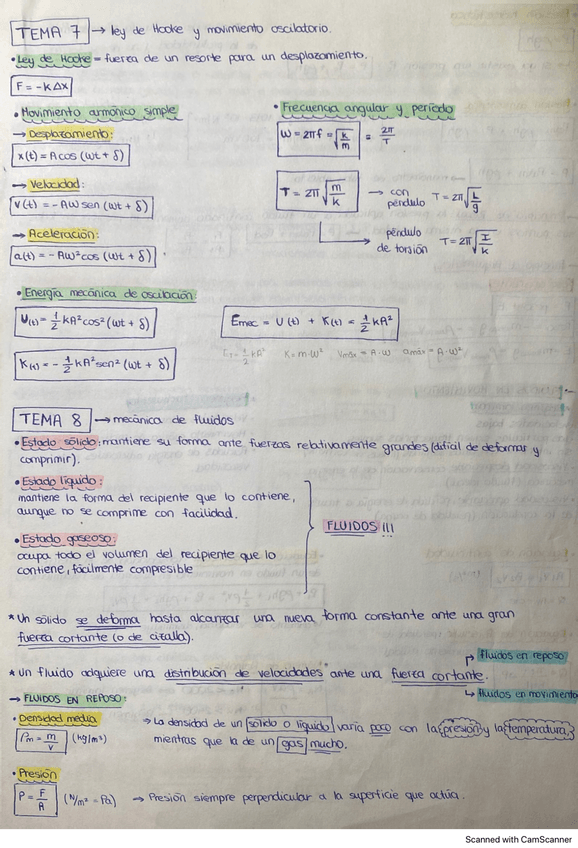 TEMA 7 → ley de Hooke y movimiento oscilatorio.
• Ley de Hooke = fuerza de un resorte para un desplazamiento.
F = -k Δx
• Movimiento armónico simple
→ Desplazamiento:
x(t) = A cos (ωt + δ)
→ Velocidad:
v(t) = - Aω sen (ωt + δ)
→ Aceleración:
a(t) = - Aω² cos (ωt + δ)
• Frecuencia angular y período
ω = 2πf = √(k/m) = 2π/T
T = 2π √(m/k) → con péndulo T = 2π √(L/g)
→ péndulo de torsión T = 2π √(I/k)
• Energía mecánica de oscilación:
U(t) = 1/2 kA² cos² (ωt + δ)
Emec = U(t) + K(t) = 1/2 kA²
K(t) = - 1/2 kA² sen² (ωt + δ)
ET = 1/2 kA² K = m·ω² Vmáx = A·ω amáx = A·ω²
TEMA 8 → mecánica de fluidos
• Estado sólido: mantiene su forma ante fuerzas relativamente grandes (difícil de deformar y
comprimir).
• Estado líquido:
mantiene la forma del recipiente que lo contiene,
aunque no se comprime con facilidad.
• Estado gaseoso:
ocupa todo el volumen del recipiente que lo
contiene, fácilmente compresible
FLUIDOS !!!
* Un sólido se deforma hasta alcanzar una nueva forma constante ante una gran
fuerza cortante (o de cizalla).
* Un fluido adquiere una distribución de velocidades ante una fuerza cortante.
fluidos en reposo
fluidos en movimiento
→ FLUIDOS EN REPOSO:
• Densidad media
ρm = m/V (kg/m³)
→ La densidad de un sólido o líquido varía poco con la presión y la temperatura,
mientras que la de un gas mucho.
• Presión
P = F/A (N/m² = Pa) → Presión siempre perpendicular a la superficie que actúa.
Scanned with CamScanner